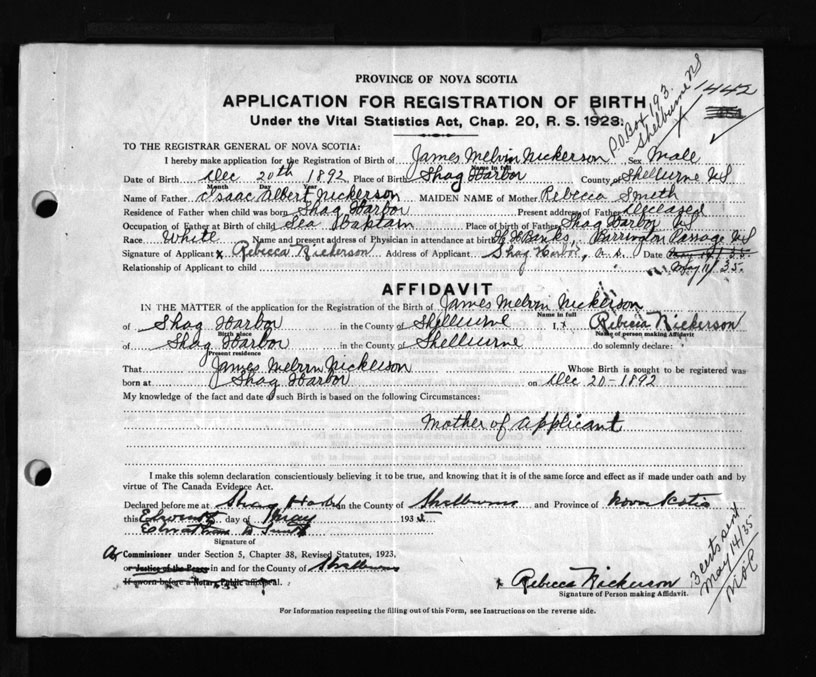 PROVINCE OF NOVA SCOTIA
APPLICATION FOR REGISTRATION OF BIRTH
Under the Vital Statistics Act, Chap. 20, R. S. 1923:
P.O. Box 193.
Shelburne NS
1442
TO THE REGISTRAR GENERAL OF NOVA SCOTIA:
I hereby make application for the Registration of Birth of James Melvin Nickerson Sex Male
Name in full
Date of Birth Dec 20th 1892 Place of Birth Shag Harbor County of Shelburne NS
Month Day Year
Name of Father Isaac Albert Nickerson MAIDEN NAME of Mother Rebecca Smith
Residence of Father when child was born Shag Harbor Present address of Father Deceased
Occupation of Father at Birth of child Sea Kaptain Place of birth of Father Shag Harbor NS
Race White Name and present address of Physician in attendance at birth Banks, Barrington Passage NS
Signature of Applicant x Rebecca Nickerson Address of Applicant Shag Harbor, n. s. Date May 11/35.
Relationship of Applicant to child
AFFIDAVIT
IN THE MATTER of the application for the Registration of the Birth of James Melvin Nickerson
Name in full
of Shag Harbor in the County of Shelburne I, x Rebecca Nickerson
Birth place Name of person making affidavit
of Shag Harbor in the County of Shelburne do solemnly declare:
Present residence
That James Melvin Nickerson Whose Birth is sought to be registered was
born at Shag Harbor on Dec 20-1892
My knowledge of the fact and date of such Birth is based on the following Circumstances:
Mother of applicant
I make this solemn declaration conscientiously believing it to be true, and knowing that it is of the same force and effect as if made under oath and by
virtue of The Canada Evidence Act.
Declared before me at Shag Harbor in the County of Shelburne and Province of Nova Scotia
this Eleventh day of May 1935
Smith
Signature of
A Commissioner under Section 5, Chapter 38, Revised Statutes, 1923,
or Justice of the Peace in and for the County of Shelburne
If sworn before a Notary Public affix seal.
x Rebecca Nickerson
Signature of Person making Affidavit.
3 cents sent
May 14/35
For Information respecting the filling out of this Form, see Instructions on the reverse side.